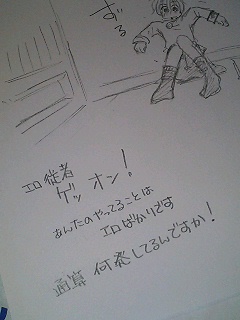 ずる
エロ従者
ゲッオン!
あんたのやってることは
エロばかりです
通算 何発してるんですか!